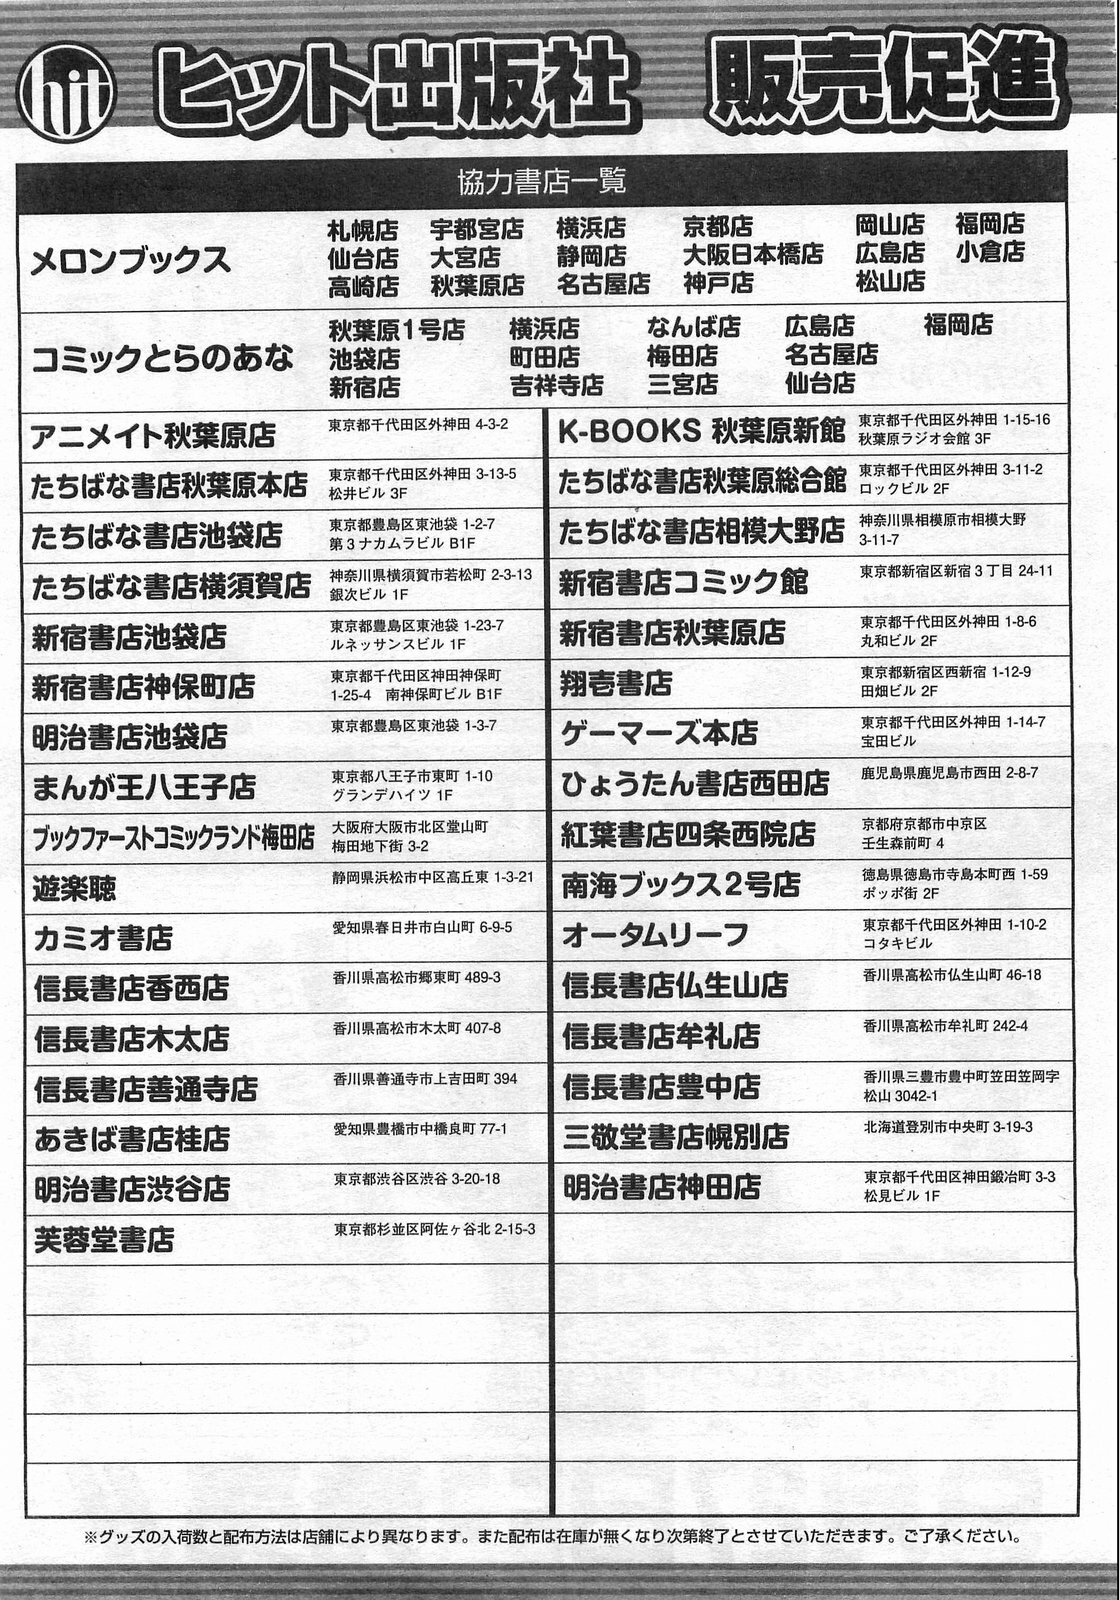 hit ヒット出版社 販売促進
協力書店一覧
メロンブックス
札幌店 宇都宮店 横浜店 京都店 岡山店 福岡店
仙台店 大宮店 静岡店 大阪日本橋店 広島店 小倉店
高崎店 秋葉原店 名古屋店 神戸店 松山店
コミックとらのあな
秋葉原1号店 横浜店 なんば店 広島店 福岡店
池袋店 町田店 梅田店 名古屋店
新宿店 吉祥寺店 三宮店 仙台店
アニメイト秋葉原店 東京都千代田区外神田 4-3-2
K-BOOKS 秋葉原新館 東京都千代田区外神田 1-15-16
秋葉原ラジオ会館 3F
たちばな書店秋葉原本店 東京都千代田区外神田 3-13-5
松井ビル 3F
たちばな書店秋葉原総合館 東京都千代田区外神田 3-11-2
ロックビル 2F
たちばな書店池袋店 東京都豊島区東池袋 1-2-7
第3ナカムラビル B1F
たちばな書店相模大野店 神奈川県相模原市相模大野
3-11-7
たちばな書店横須賀店 神奈川県横須賀市若松町 2-3-13
銀次ビル 1F
新宿書店コミック館 東京都新宿区新宿3丁目 24-11
新宿書店池袋店 東京都豊島区東池袋 1-23-7
ルネッサンスビル 1F
新宿書店秋葉原店 東京都千代田区外神田 1-8-6
丸和ビル 2F
新宿書店神保町店 東京都千代田区神田神保町
1-25-4 南神保町ビル B1F
翔壱書店 東京都新宿区西新宿 1-12-9
田畑ビル 2F
明治書店池袋店 東京都豊島区東池袋 1-3-7
ゲーマーズ本店 東京都千代田区外神田 1-14-7
宝田ビル
まんが王八王子店 東京都八王子市東町 1-10
グランデハイツ 1F
ひょうたん書店西田店 鹿児島県鹿児島市西田 2-8-7
ブックファーストコミックランド梅田店 大阪府大阪市北区堂山町
梅田地下街 3-2
紅葉書店四条西院店 京都府京都市中京区
壬生森前町 4
遊楽聴 静岡県浜松市中区高丘東 1-3-21
南海ブックス2号店 徳島県徳島市寺島本町西 1-59
ポッポ街 2F
カミオ書店 愛知県春日井市白山町 6-9-5
オータムリーフ 東京都千代田区外神田 1-10-2
コタキビル
信長書店香西店 香川県高松市郷東町 489-3
信長書店仏生山店 香川県高松市仏生山町 46-18
信長書店木太店 香川県高松市木太町 407-8
信長書店牟礼店 香川県高松市牟礼町 242-4
信長書店善通寺店 香川県善通寺市上吉田町 394
信長書店豊中店 香川県三豊市豊中町笠田笠岡字
松山 3042-1
あきば書店桂店 愛知県豊橋市中橋良町 77-1
三敬堂書店幌別店 北海道登別市中央町 3-19-3
明治書店渋谷店 東京都渋谷区渋谷 3-20-18
明治書店神田店 東京都千代田区神田鍛冶町 3-3
松見ビル 1F
芙蓉堂書店 東京都杉並区阿佐ヶ谷北 2-15-3
※グッズの入荷数と配布方法は店舗により異なります。また配布は在庫が無くなり次第終了とさせていただきます。ご了承ください。